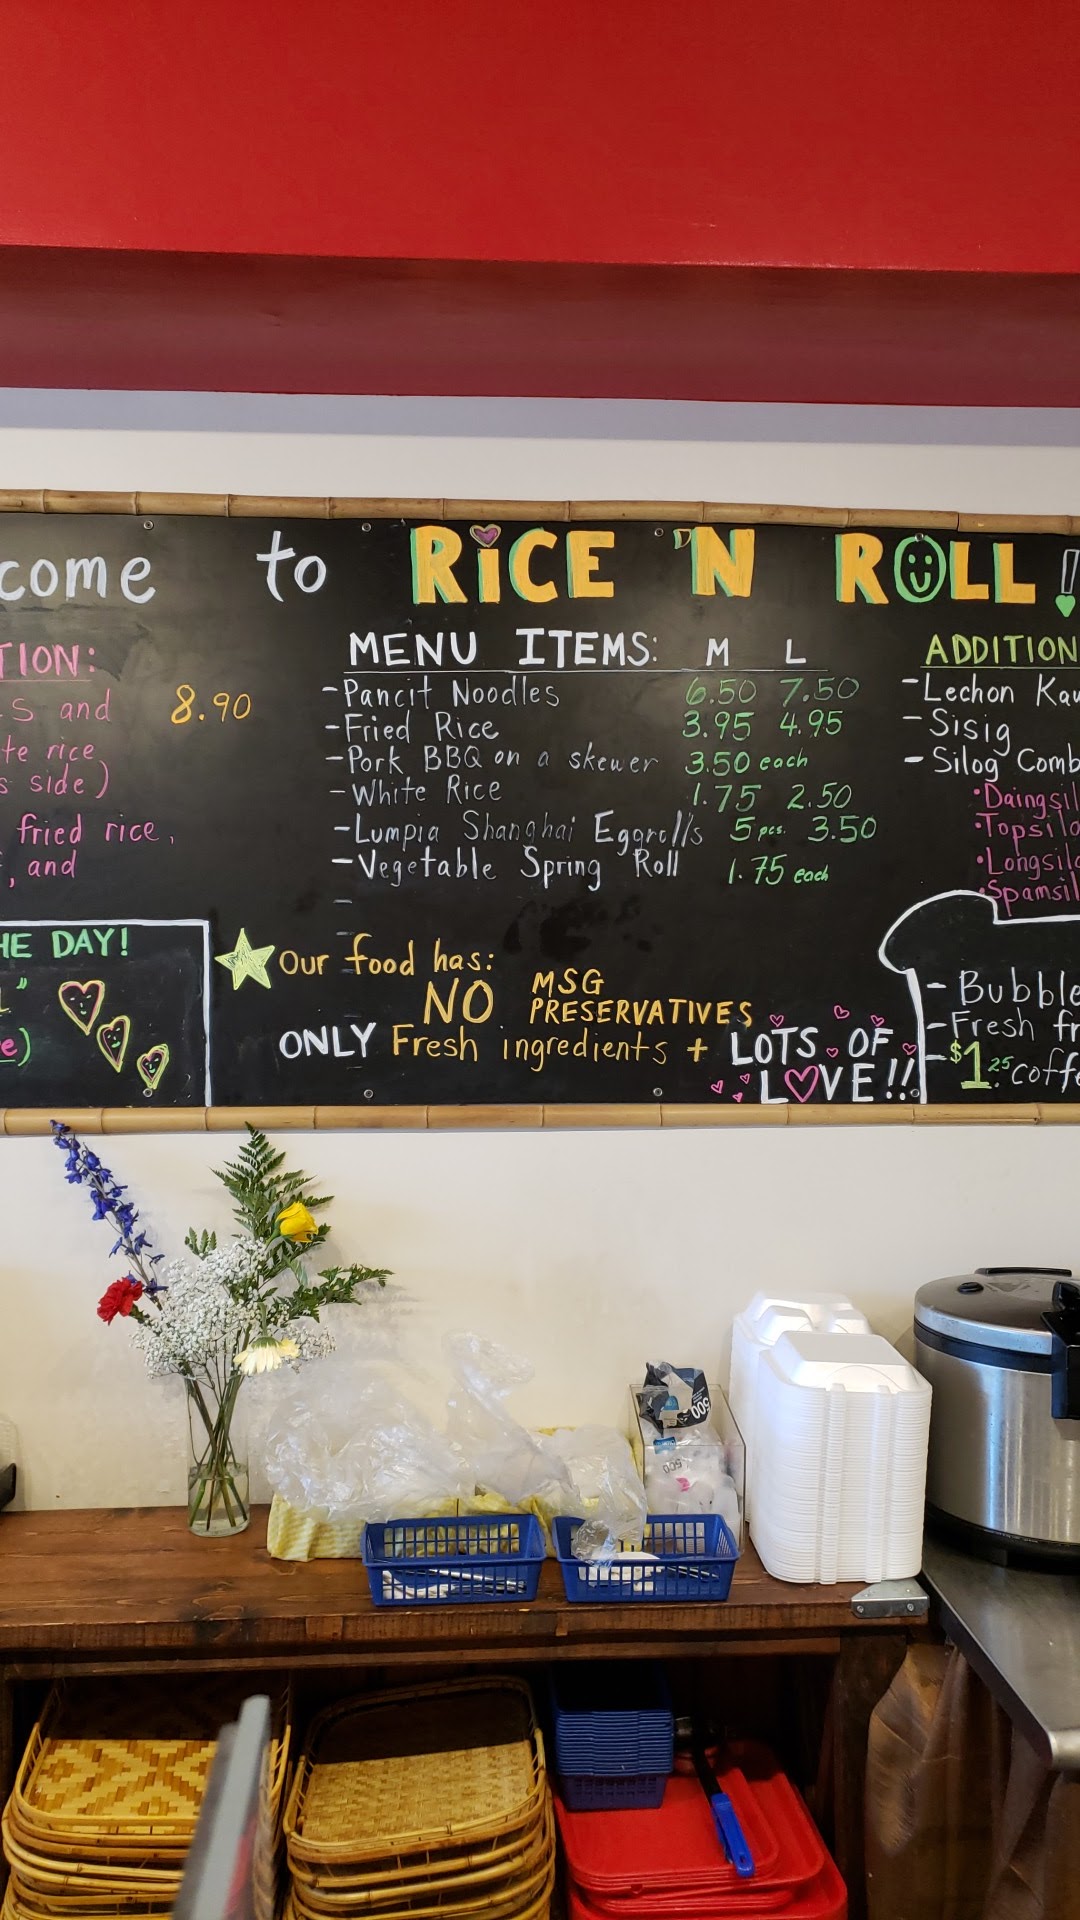 come to RiCE 'N ROLL!
TION:
S and 8.90
te rice
s side)
fried rice,
, and
HE DAY!
"
e)
MENU ITEMS: M L
- Pancit Noodles 6.50 7.50
- Fried Rice 3.95 4.95
- Pork BBQ on a skewer 3.50 each
- White Rice 1.75 2.50
- Lumpia Shanghai Eggrolls 5 pcs. 3.50
- Vegetable Spring Roll 1.75 each
Our food has:
NO MSG
PRESERVATIVES
ONLY Fresh ingredients + LOTS OF
LOVE!!
ADDITION
- Lechon Kaw
- Sisig
- Silog Comb
• Daingsil
• Topsilo
• Longsilo
• Spamsil
- Bubble
- Fresh fr
- $1.25 coffe
500